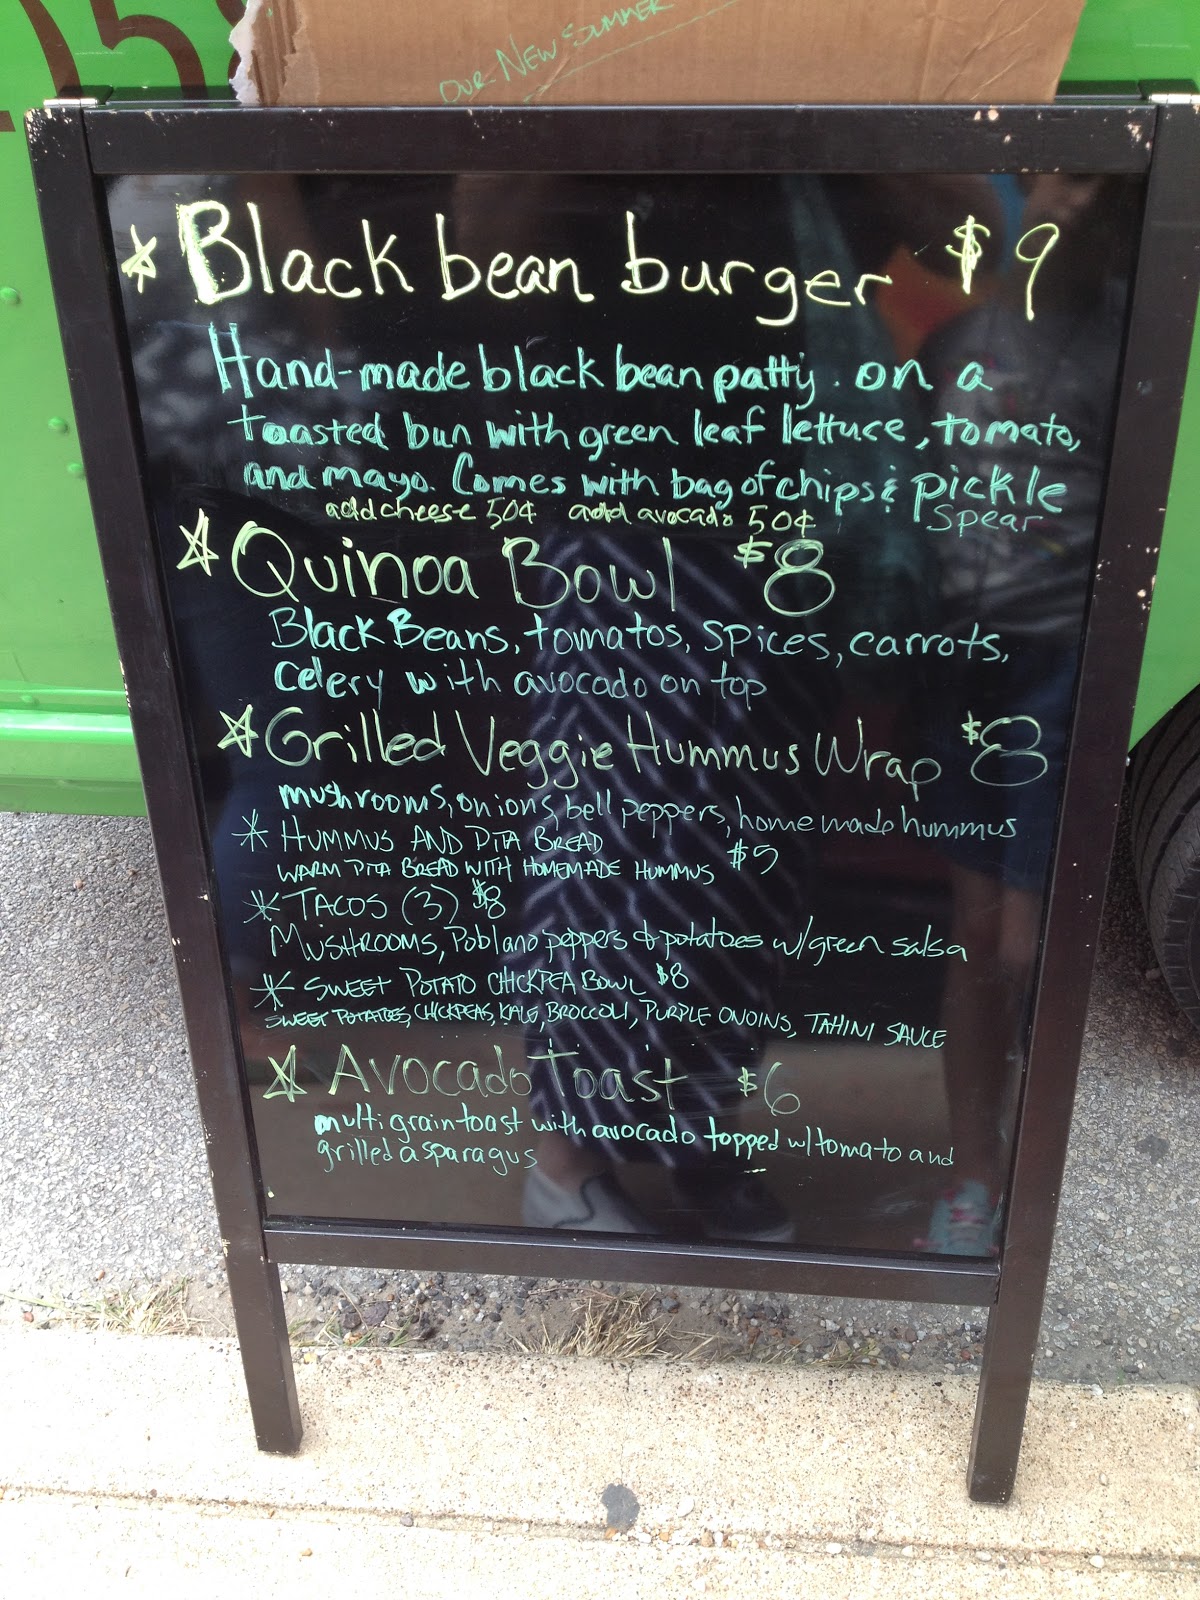 058
OUR NEW SUMMER
Black bean burger $9
Hand-made black bean patty. on a
toasted bun with green leaf lettuce, tomato,
and mayo. Comes with bag of chips & pickle
spear
add cheese 50¢ add avocado 50¢
Quinoa Bowl $8
Black Beans, tomatos, spices, carrots,
celery with avocado on top
Grilled Veggie Hummus Wrap $8
mushrooms, onions, bell peppers, homemade hummus
HUMMUS AND PITA BREAD $5
WARM PITA BREAD WITH HOMEMADE HUMMUS
TACOS (3) $8
MUSHROOMS, Poblano peppers & potatoes w/green salsa
SWEET POTATO CHICKPEA BOWL $8
SWEET POTATOES, CHICKPEAS, KALE, BROCCOLI, PURPLE ONOINS, TAHINI SAUCE
Avocado Toast $6
multi grain toast with avocado topped w/ tomato and
grilled asparagus